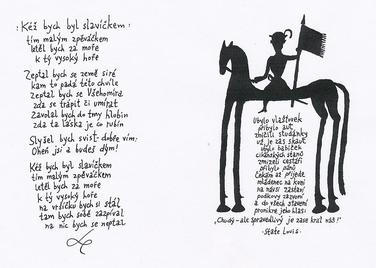 : Kéž bych byl slavíčkem :
tím malým zpěváčkem
letěl bych za moře
k tý vysoký hoře
Zeptal bych se země siré
kam to padá této chvíle
Zeptal bych se Všehomíra
zda se trápit či umírat
Zavolal bych do tmy hlubin
zda ta láska je co rubín
Slyšel bych svist - dobře vím:
Oheň jsi a budeš dým!
Kéž bych byl slavíčkem
tím malým zpěváčkem
letěl bych za moře
k tý vysoký hoře
na vršíčku bych si stál
tam bych sobě zazpíval
na nic bych se neptal
Ubylo vlaštovek
přibylo aut
zmizely studánky
už je zas skaut
ubylo babiček
cikánských stanů
zmizeli cestáři
přibylo pánů
Čekám až přijede
mládenec na koni
na návsi zastaví
podkovy zazvoní
a do všech stavení
pronikne jeho hlas:
„Chudý - ale spravedlivý je zase král náš!"